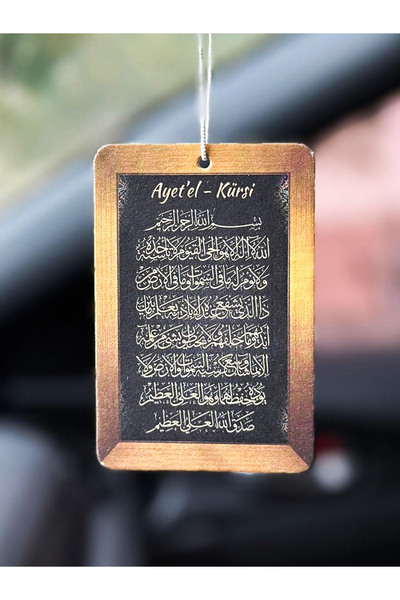 Ayet'el - Kürsi
بسم الله الرحمن الرحيم
الله لا اله الا هو الحي القيوم لا تاخذه سنة
ولا نوم له ما في السموات وما في الارض
ذا الذي يشفع عنده الا باذنه يعلم ما بين
ايديهم وما خلفهم ولا يحيطون بشيء من علمه
الا بما شاء وسع كرسيه السموات والارض ولا
يؤده حفظهما وهو العلي العظيم
صدق الله العلي العظيم